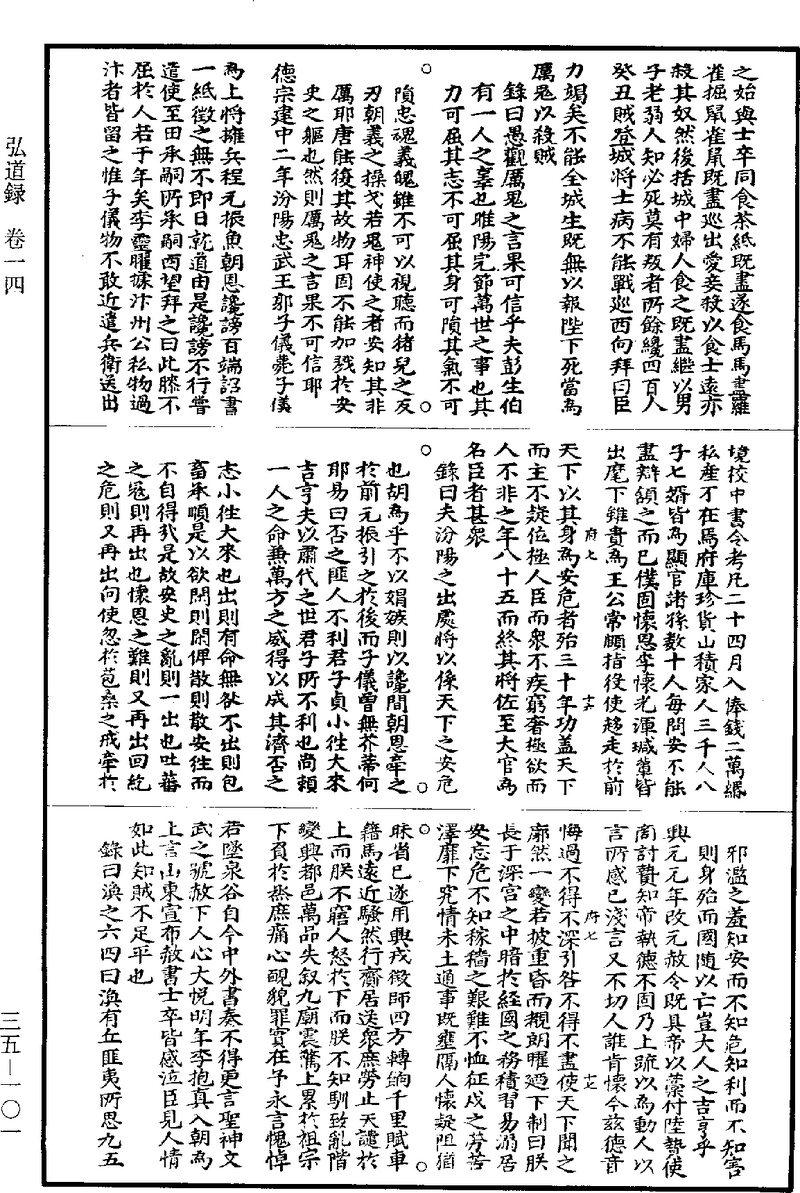 之始與士卒同食茶紙既盡遂食馬馬盡羅
雀掘鼠雀鼠既盡巡出愛妾殺以食士遠亦
殺其奴然後括城中婦人食之既盡繼以男
子老弱人知必死莫有叛者所餘纔四百人
癸丑賊登城將士病不能戰巡西向拜曰臣
力竭矣不能全城生既無以報陛下死當為
厲鬼以殺賊
錄曰愚觀厲鬼之言果可信乎夫彭生伯
有一人之辜也睢陽完節萬世之事也其
力可屈其志不可屈其身可隕其氣不可
隕忠魂義魄雖不可以視聽而猪兒之反
刃朝義之操戈若鬼神使之者安知其非
厲耶唐能復其故物耳固不能加戮於安
史之軀也然則厲鬼之言果不可信耶
德宗建中二年汾陽忠武王郭子儀薨子儀
為上將擁兵程元振魚朝恩讒謗百端詔書
一紙徵之無不即日就道由是讒謗不行嘗
遣使至田承嗣所承嗣西望拜之曰此膝不
屈於人若干年矣李靈曜據汴州公私物過
汴者皆留之惟子儀物不敢近遣兵衛送出
境校中書令考凡二十四月入俸錢二萬緡
私產不在焉府庫珍貨山積家人三千人八
子七婿皆為顯官諸孫數十人每問安不能
盡辯頷之而已僕固懷恩李懷光渾瑊輩皆
出麾下雖貴為王公常頤指役使趨走於前
府七
十六
天下以其身為安危者殆三十年功蓋天下
而主不疑位極人臣而衆不疾窮奢極欲而
人不非之年八十五而終其將佐至大官為
名臣者甚衆
錄曰夫汾陽之出處將以係天下之安危
也胡為乎不以娼嫉則以讒間朝恩牽之
於前元振引之於後而子儀曾無芥蒂何
耶易曰否之匪人不利君子貞小往大來
吉亨夫以肅代之世君子所不利也尚賴
一人之命兼萬方之威得以成其濟否之
志小往大來也出則有命無咎不出則包
畜承順是以欲閑則閑俾散則散安往而
不自得我是故安史之亂則一出也吐蕃
之寇則再出也懷恩之難則又再出回紇
之危則又再出向使忽於苞桑之戒牽於
邪濫之羞知安而不知危知利而不知害
則身殆而國隨以亡豈大人之吉亨乎
興元元年改元赦令既具帝以藁付陸贄使
商討贄知帝執德不固乃上疏以為動人以
言所感已淺言又不切人誰肯懷今茲德音
府七
十七
悔過不得不深引咎不得不盡使天下聞之
廓然一變若披重昏而覩朗曜迺下制曰朕
長于深宮之中暗於經國之務積習易溺居
安忘危不知稼穡之艱難不恤征戍之勞苦
澤靡下究情未上通事既壅隔人懷疑阻猶
昧省已遂用興戎徵師四方轉餉千里賦車
籍馬遠近騷然行齎居送衆庶勞止天譴於
上而朕不寤人怒於下而朕不知馴致亂階
變興都邑萬品失叙九廟震驚上累於祖宗
下負於烝庶痛心靦貌罪實在予永言愧悼
若墜泉谷自今中外書奏不得更言聖神文
武之號赦下人心大悅明年李抱真入朝為
上言山東宣布赦書士卒皆感泣臣見人情
如此知賊不足平也
錄曰渙之六四曰渙有丘匪夷所思九五
弘道録 卷一四
三五—一〇一